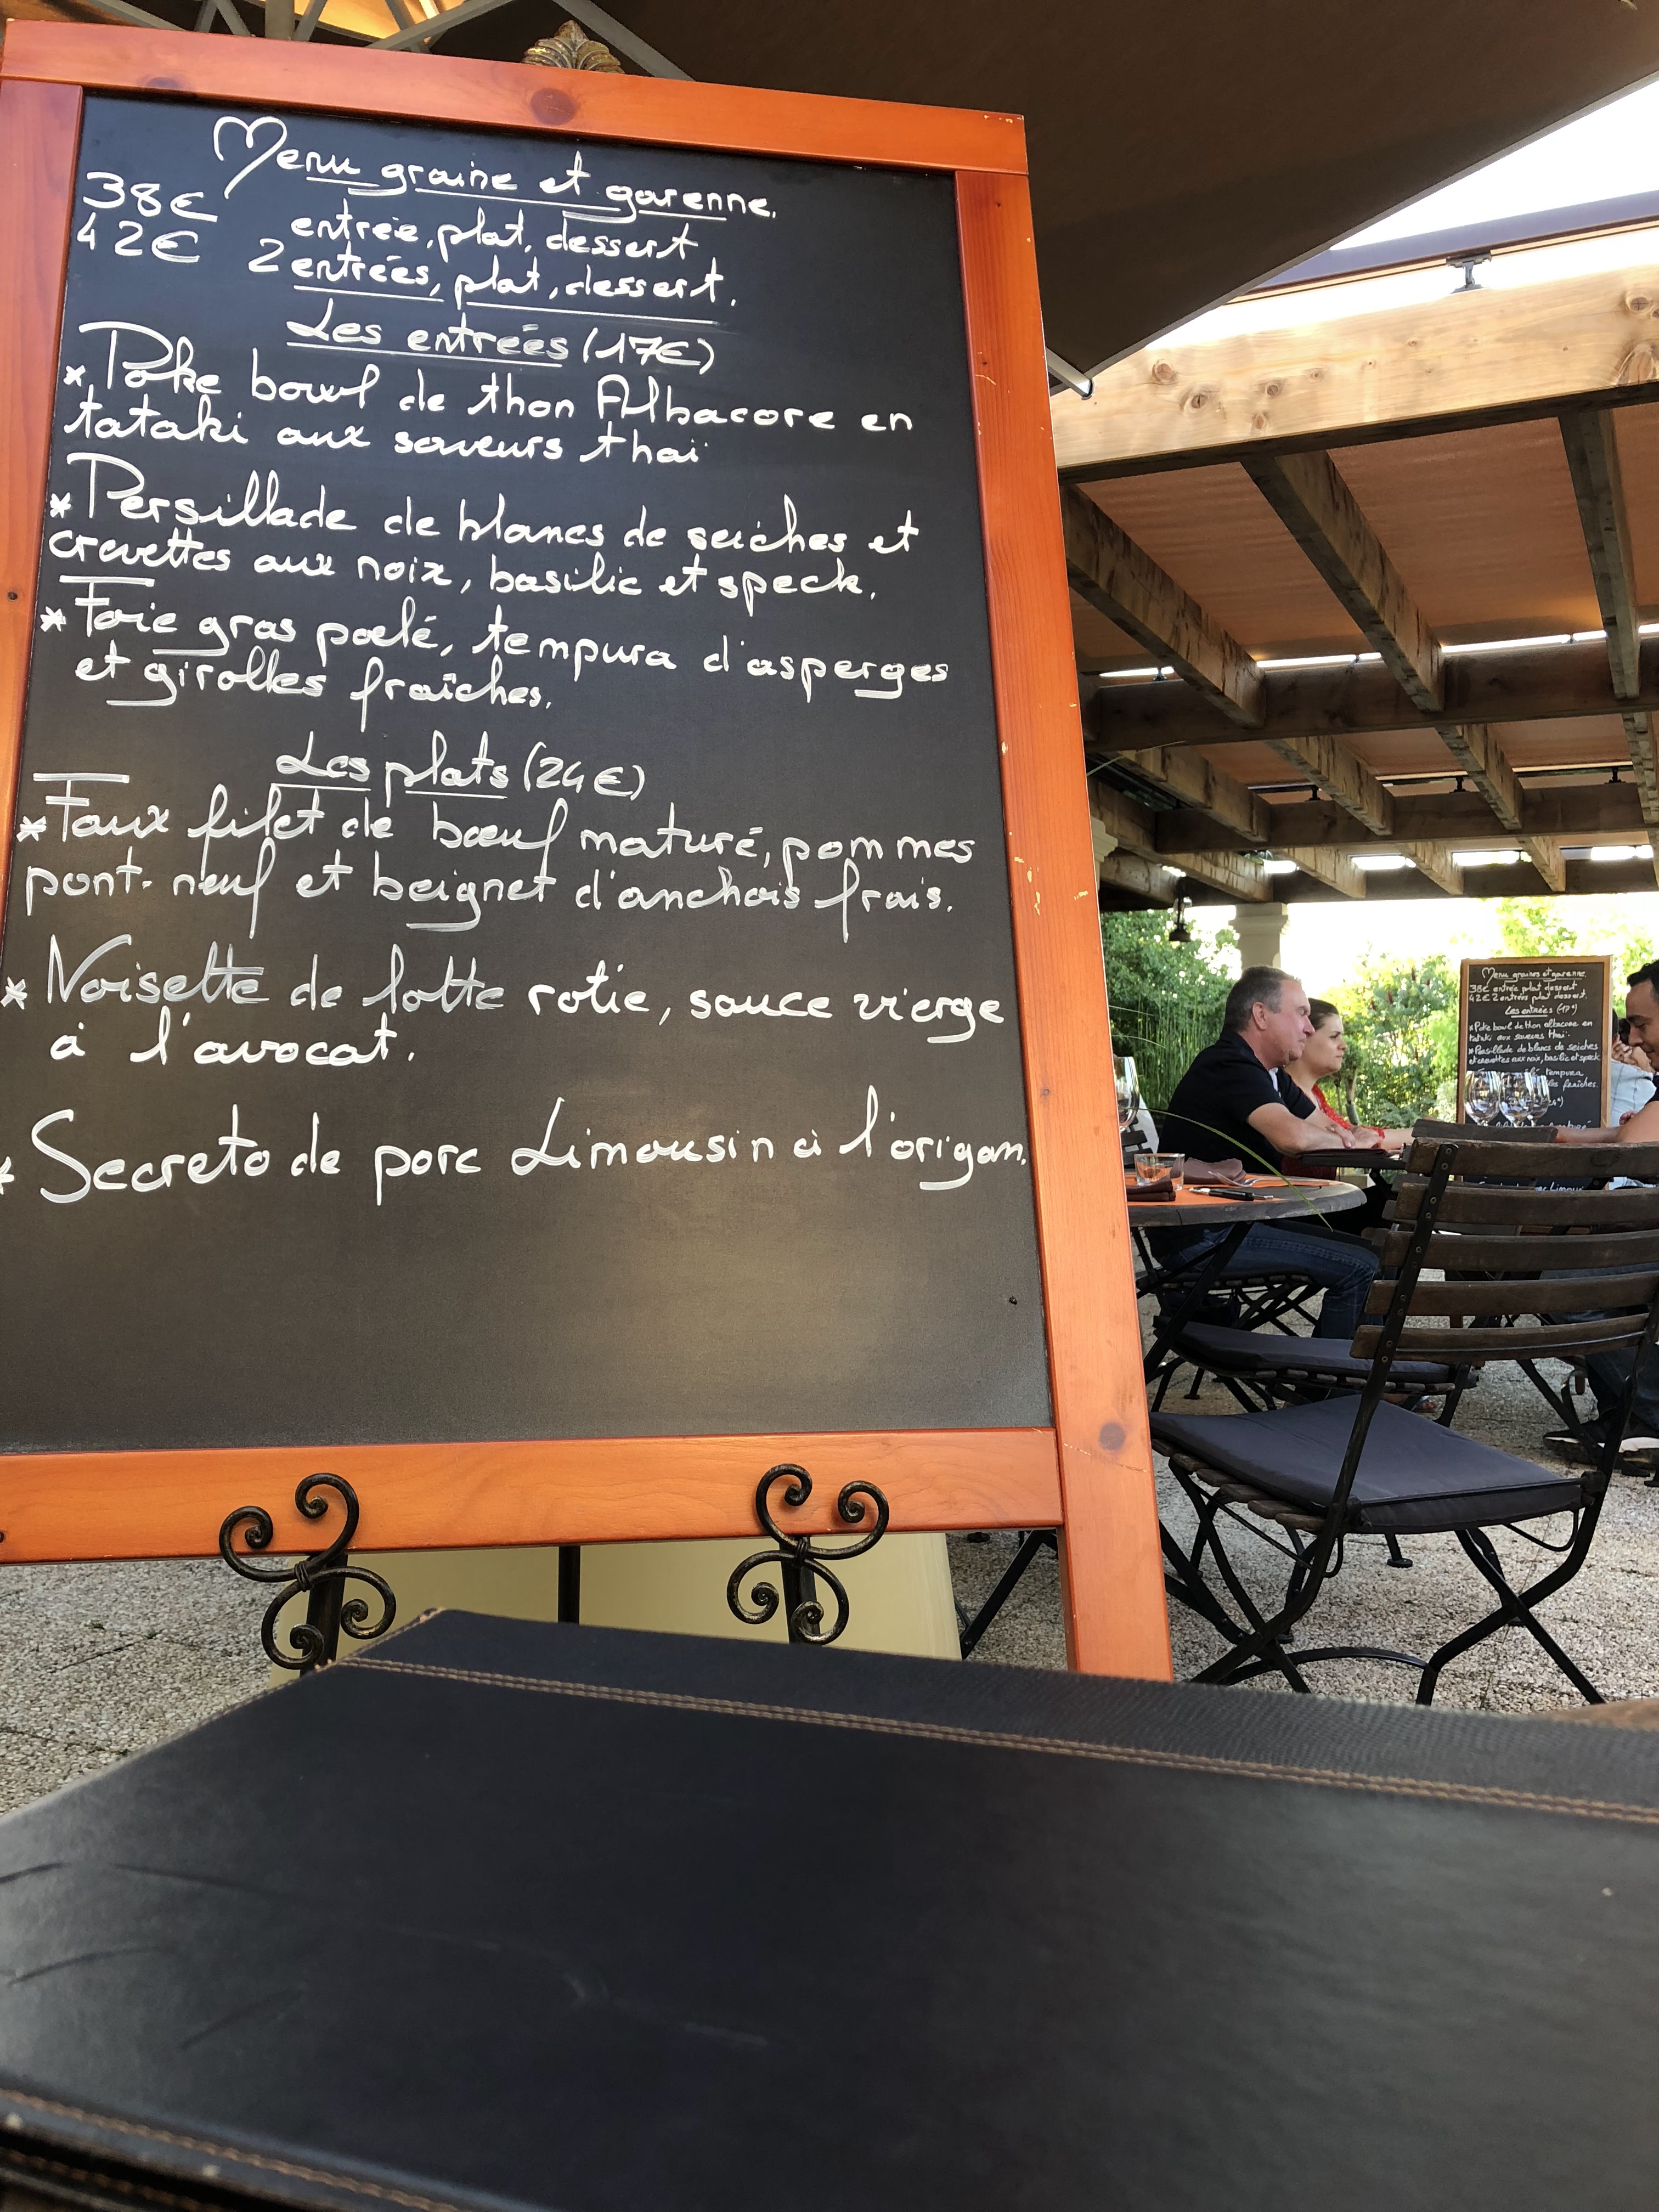 Menu graine et garenne.
38€ entrée, plat, dessert
42€ 2 entrées, plat, dessert.
Les entrées (17€)
* Poke bowl de thon Albacore en
tataki aux saveurs thaï
* Persillade de blancs de seiches et
crevettes aux noix, basilic et speck.
* Foie gras poelé, tempura d'asperges
et girolles fraîches.
Les plats (24€)
* Faux filet de bœuf maturé, pommes
pont-neuf et beignet d'anchois frais.
* Noisette de lotte rotie, sauce vierge
à l'avocat.
* Secreto de porc Limousin à l'origan.
Menu graines et garenne.
38€ entrée plat dessert
42€ 2 entrées plat dessert.
Les entrées (17€)
* Poke bowl de thon albacore en
tataki aux saveurs thaï.
* Persillade de blancs de seiches
et crevettes aux noix, basilic et speck
tempura
fraîches.